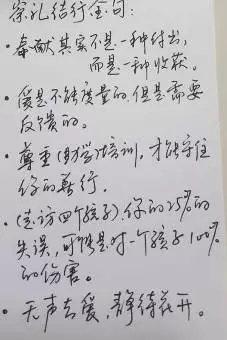 蔡礼结行金句:
·奉献其实不是一种付出,
而是一种收获。
·爱是不能度量的.但是需要
反馈的。
·尊重(助学)培训,才能守住
你的善行.
·(走访四个孩子).你的25%的
失误,可能是对一个孩子100%
的伤害。
·无声去爱,静待花开。